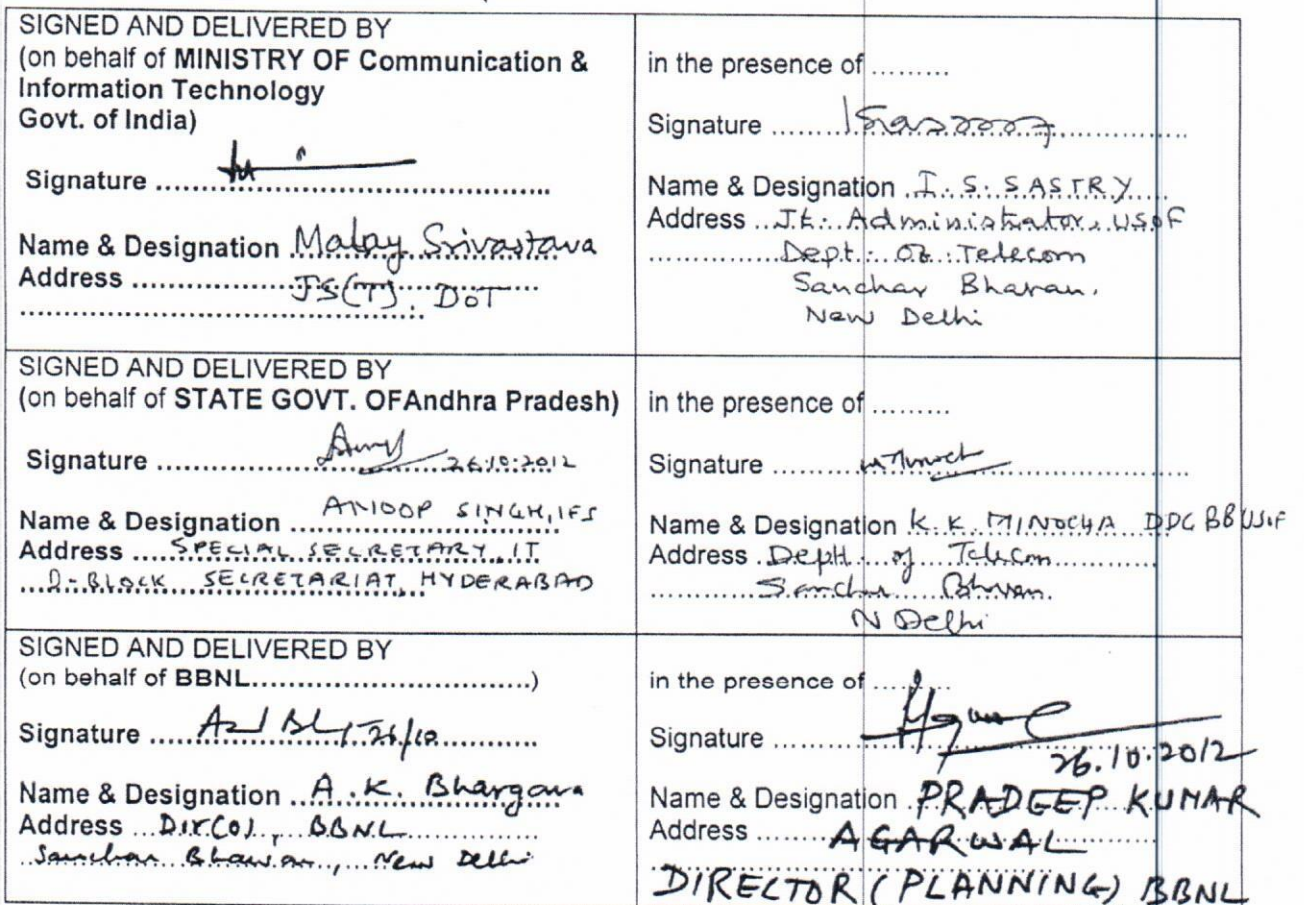 SIGNED AND DELIVERED BY
(on behalf of MINISTRY OF Communication &
Information Technology
Govt. of India)
Signature ..........
Name & Designation Malay Srivastava
Address ..........JS(T), DoT
in the presence of .........
Signature ..........
Name & Designation I. S. SASTRY
Address Jt. Administrator, USOF
Dept. Of Telecom
Sanchar Bhavan,
New Delhi
SIGNED AND DELIVERED BY
(on behalf of STATE GOVT. OFAndhra Pradesh)
Signature .......... 26.10.2012
Name & Designation ANOOP SINGH, IFS
Address SPECIAL SECRETARY, IT
D-BLOCK SECRETARIAT, HYDERABAD
in the presence of .........
Signature ..........
Name & Designation K. K. MINOCHA DDG BB USOF
Address Deptt. of Telecom
Sanchar Bhavan
N Delhi
SIGNED AND DELIVERED BY
(on behalf of BBNL..............................)
Signature .......... 26/10
Name & Designation A. K. Bhargava
Address Dir(O), BBNL
Sanchar Bhawan, New Delhi
in the presence of .........
Signature ..........
26.10.2012
Name & Designation PRADEEP KUMAR
Address AGARWAL
DIRECTOR (PLANNING) BBNL